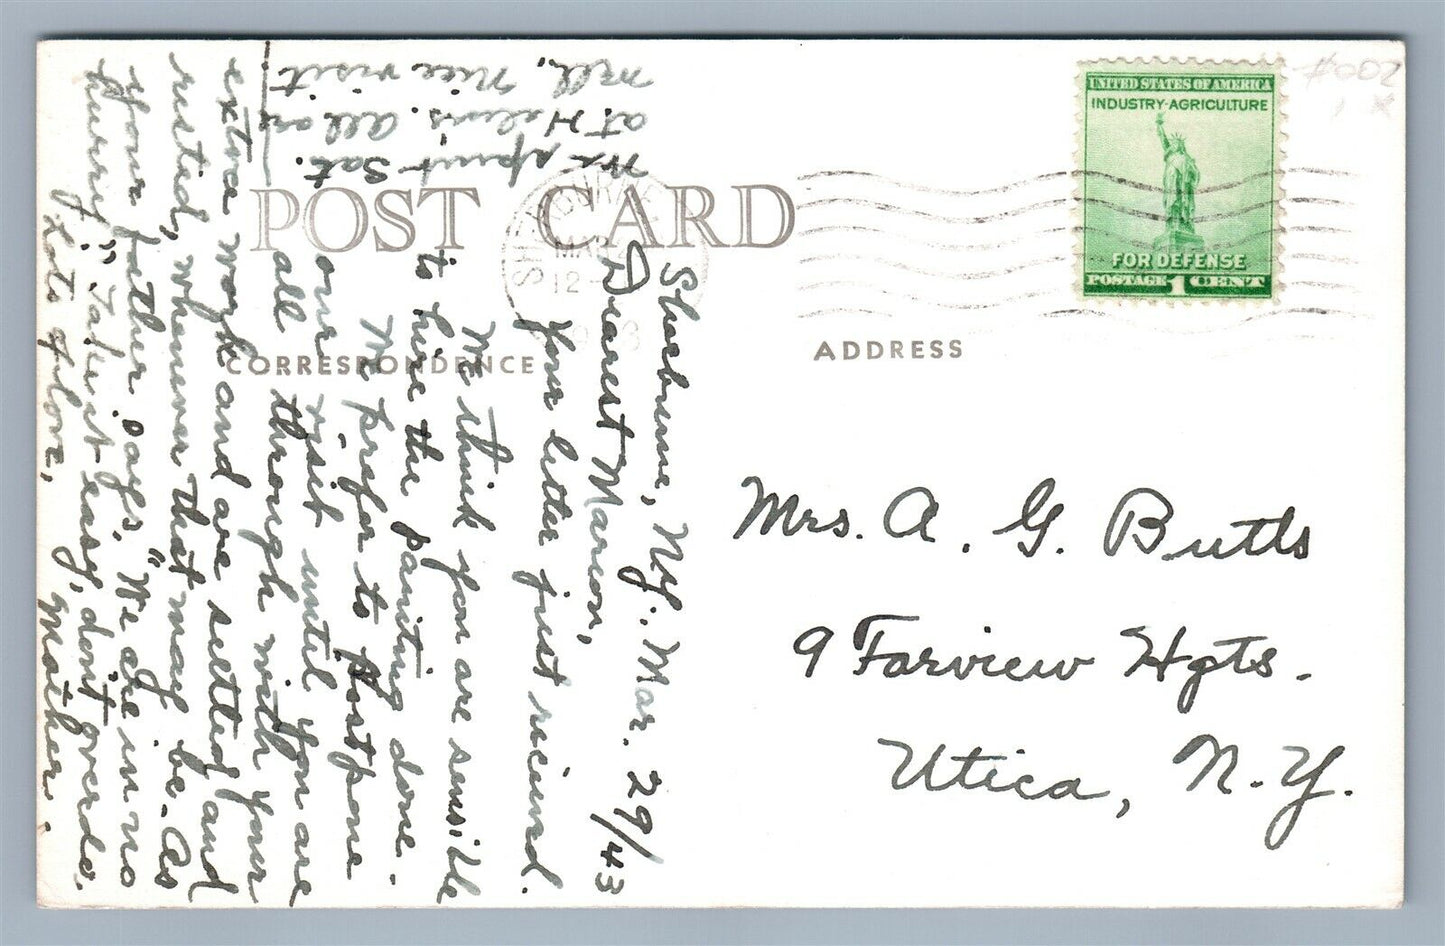 UNITED STATES OF AMERICA
INDUSTRY-AGRICULTURE
FOR DEFENSE
POSTAGE 1 CENT
#002
POST CARD
CORRESPONDENCE
ADDRESS
MAR
12
Mrs. A. G. Butts
9 Farview Hgts.
Utica, N.Y.
Sherburne, N.Y. Mar. 29/43
Dearest Marion,
Your letter just received.
We think you are sensible
to have the painting done.
We prefer to postpone
our visit until you are
all through with your
extra work and are settled and
rested, whenever that may be. As
your father says, "We are in no
hurry." Take it easy, don't overdo.
Lots of love, Mother.
We spent Sat.
at Helen's. All are
well. Nice visit